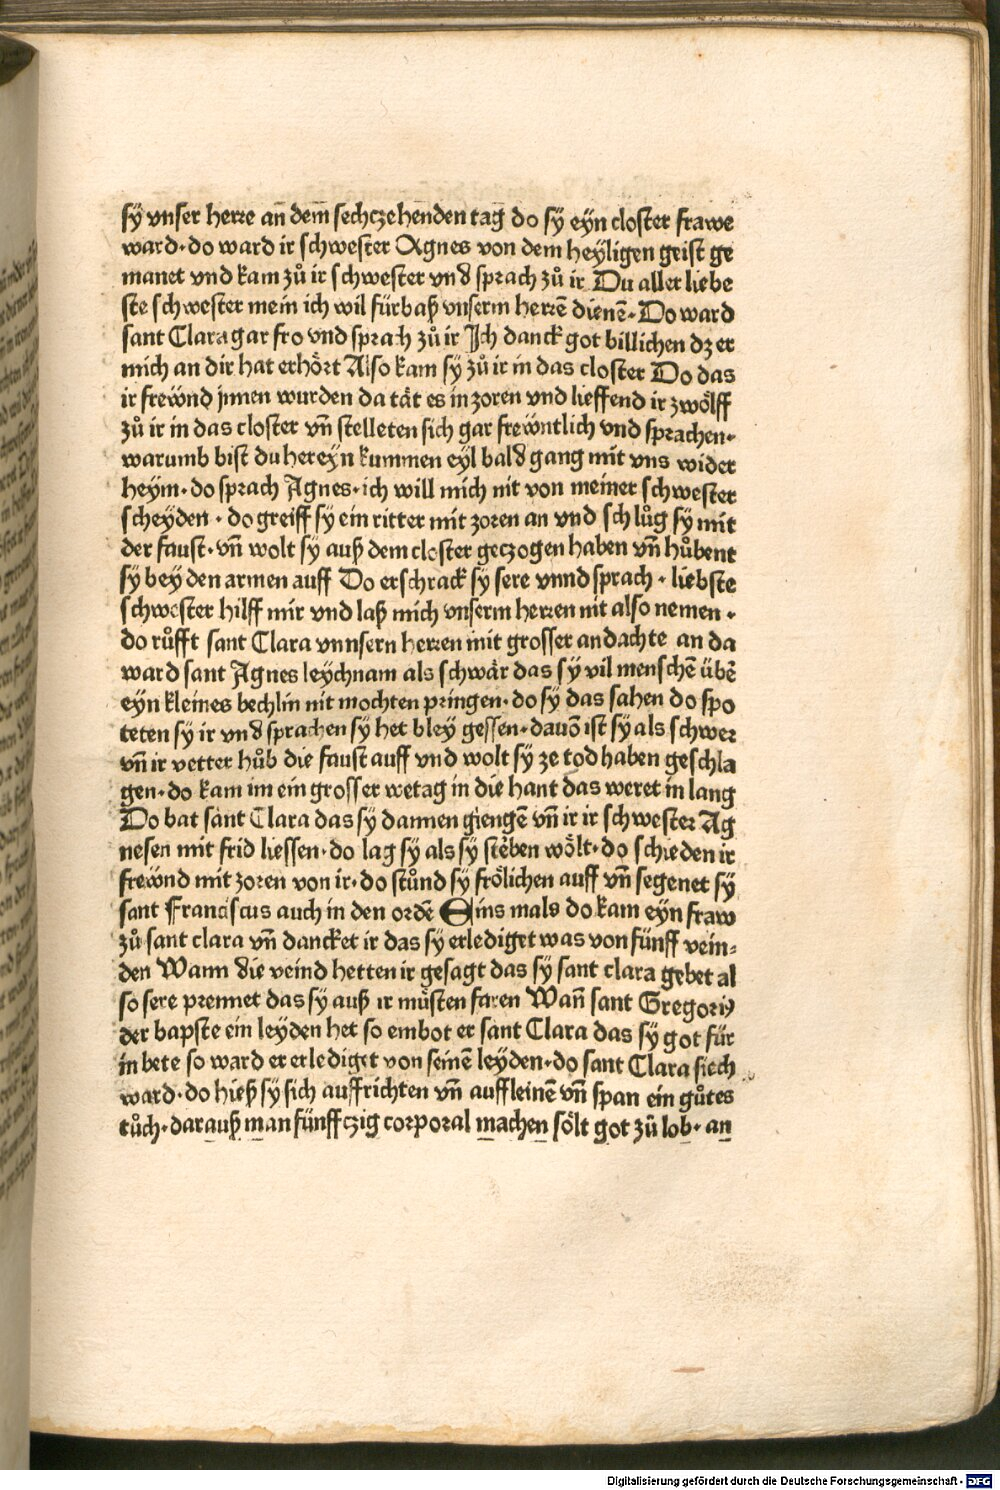 sy vnser herre an dem sechczehenden tag do sy eyn closter frawe
ward· do ward ir schwester Agnes von dem heyligen geist ge
manet vnd kam zů ir schwester vnd sprach zů ir Du aller liebe
ste schwester mein ich wil fürbaß vnserm herrē dienē· Do ward
sant Clara gar fro vnd sprach zů ir Ich danck got billichen dz er
mich an dir hat erhört Also kam sy zů ir in das closter Do das
ir freẅnd jnnen wurden da tät es in zoren vnd lieffend ir zwölff
zů ir in das closter vn̄ stelleten sich gar freẅntlich vnd sprachen·
warumb bist du hereyn kummen eyl bald gang mit vns wider
heym· do sprach Agnes· ich will mich nit von meiner schwester
scheyden · do greiff sy ein ritter mit zoren an vnd schlůg sy mit
der faust· vn̄ wolt sy auß dem closter geczogen haben vn̄ hůbent
sy bey den armen auff Do erschrack sy sere vnnd sprach · liebste
schwester hilff mir vnd laß mich vnserm herren nit also nemen ·
do růfft sant Clara vnnsern herren mit grosser andachte an da
ward sant Agnes leychnam als schwär das sy vil menschē übē
eyn kleines bechlin nit mochten pringen· do sy das sahen do spo
teten sy ir vnd sprachen sy het bley gessen· davō ist sy als schwer
vn̄ ir vetter hůb die faust auff vnd wolt sy ze tod haben geschla
gen· do kam im ein grosser wetag in die hant das weret in lang
Do bat sant Clara das sy dannen giengē vn̄ ir ir schwester Ag
nesen mit frid liessen· do lag sy als sy stēben wölt· do schieden ir
freẅnd mit zoren von ir· do stůnd sy frölichen auff vn̄ segenet sy
sant Franciscus auch in den ordē Eins mals do kam eyn fraw
zů sant clara vn̄ dancket ir das sy erlediget was von fünff vein=
den Wann die veind hetten ir gesagt das sy sant clara gebet al
so sere prennet das sy auß ir müsten faren Wan̄ sant Gregoriꝰ
der bapste ein leyden het so embot er sant Clara das sy got für
in bete so ward er erlediget von seinē leyden· do sant Clara siech
ward· do hieß sy sich auffrichten vn̄ auffleinē vn̄ span ein gůtes
tůch· darauß man fünffczig corporal machen sölt got zů lob· an
Digitalisierung gefördert durch die Deutsche Forschungsgemeinschaft - DFG